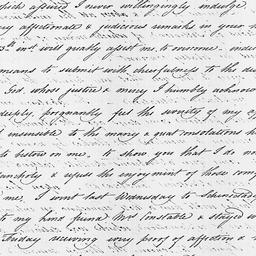 which assured I never willingly indulge.
affectionate & judicious remarks in your
inst. will greatly assist me to overcome.
means to submit with cheerfulness to the
God, whose justice & mercy I humbly
deeply, poignantly feel the severity of my
insensible to the many & great consolations
to bestow on me, to show you that I do
& refuse the enjoyment of those
me. I went last Wednesday to
to my kind friend Mrs Constable & stayed
Friday receiving every proof of affection &